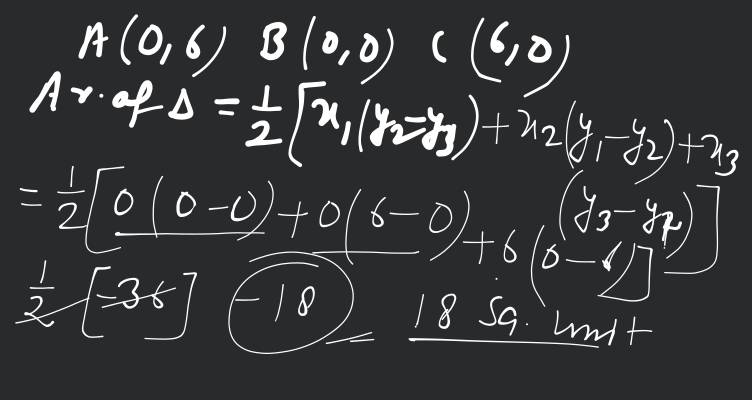 A(0,6) B(0,0) C(6,0)
Ar. of Δ = 1/2 [x₁(y₂-y₃) + x₂(y₁-y₂) + x₃(y₃-y₂)]
= 1/2 [0(0-0) + 0(6-0) + 6(0-6)]
1/2 [-36] -18 = 18 Sq. unit